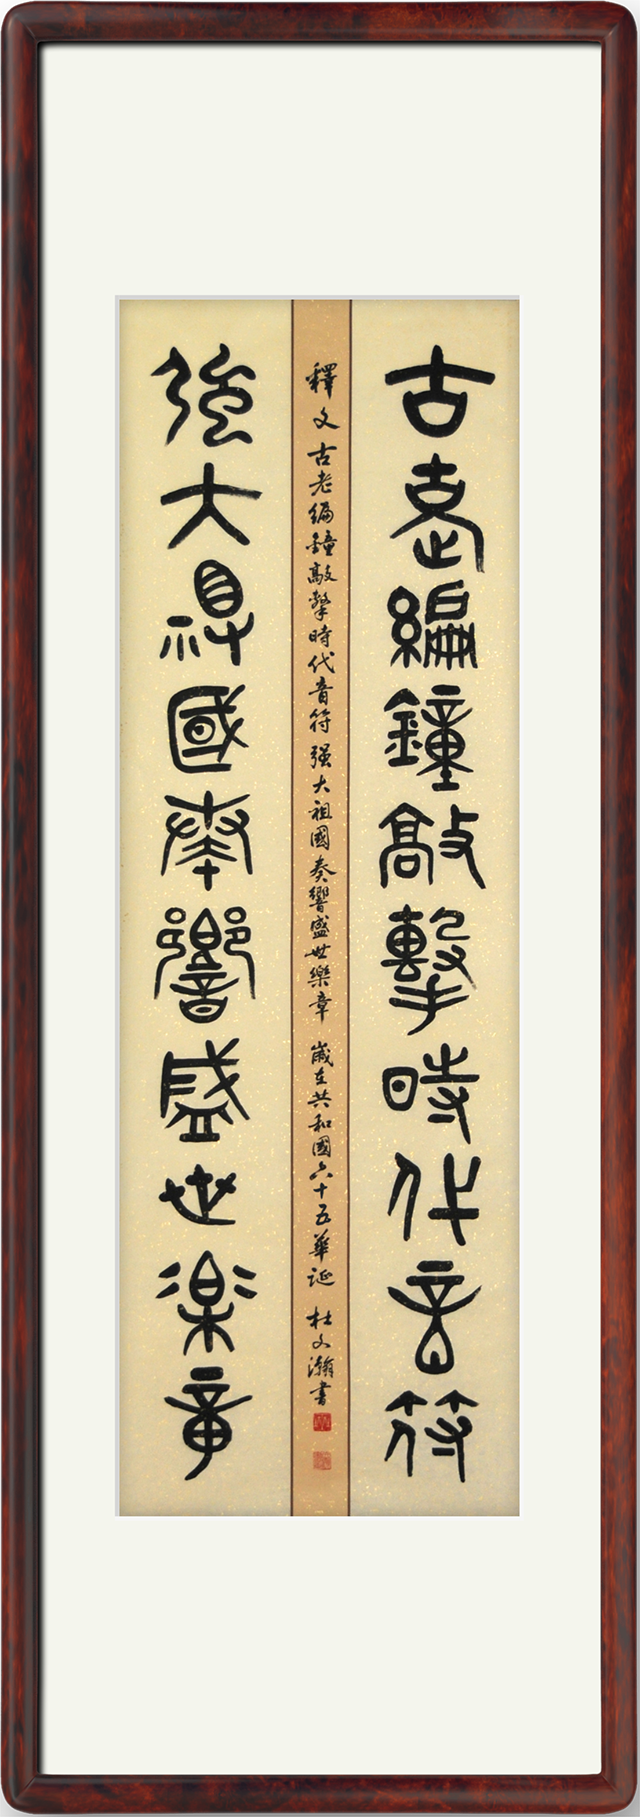 古老編鐘敲擊時代音符
釋文古老編鐘敲擊時代音符强大祖國奏響盛世樂章 歲在共和國六十五華誕 杜文瀚書
強大祖國奏響盛世樂章